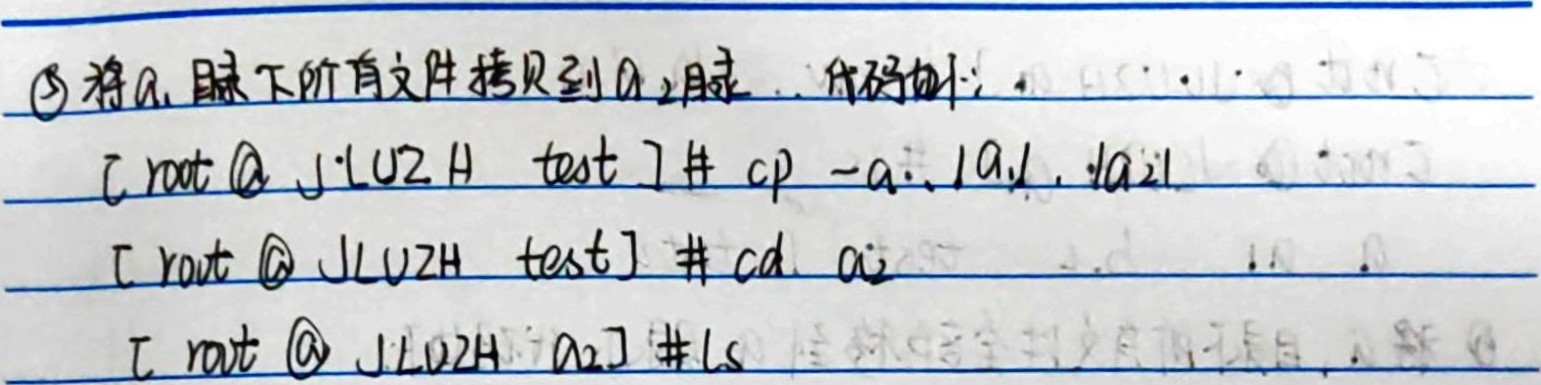 ③将a1目录下所有文件拷贝到a2目录. 代码如下:
[root@JLUZH test]# cp -a ./a1/. ./a2/
[root@JLUZH test]# cd a2
[root@JLUZH a2]#ls